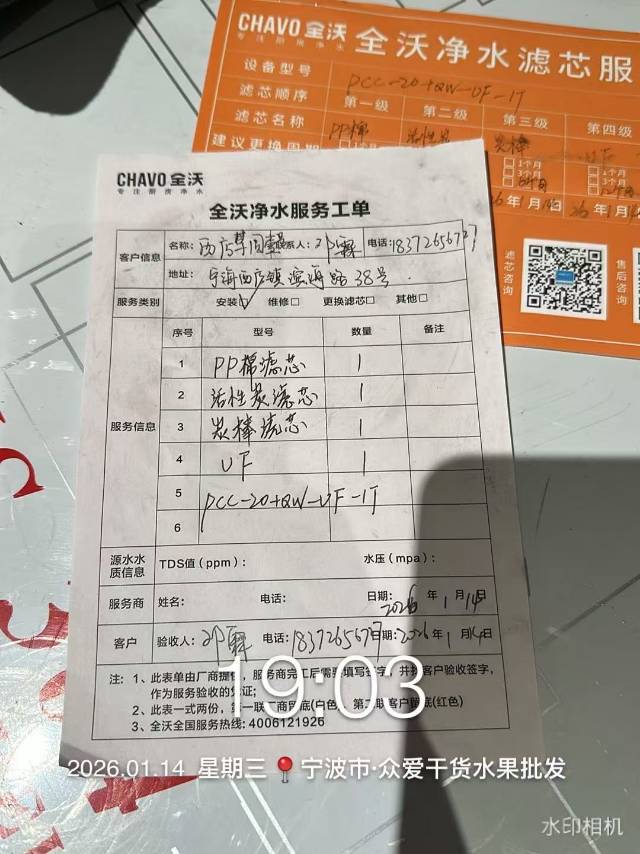 CHAVO 全沃
专注厨房净水
全沃净水滤芯服
设备型号 PCC-20+QW-UF-1T
滤芯顺序 第一级 第二级 第三级 第四级
滤芯名称 PP棉 炭棒 UF
建议更换周期
1个月
3个月
1月14
滤芯咨询
售后咨
CHAVO 全沃
专注厨房净水
全沃净水服务工单
客户信息 名称: 联系人: 电话:18372656727
地址: 宁海西店镇滨海路38号
服务类别 安装☑ 维修□ 更换滤芯□ 其他□
服务信息 序号 型号 数量 备注
1 PP棉滤芯 1
2 活性炭滤芯 1
3 炭棒滤芯 1
4 UF 1
5 PCC-20+QW-UF-1T
6
源水水质信息 TDS值(ppm): 水压(mpa):
服务商 姓名: 电话: 日期: 2026年1月14日
客户 验收人: 电话:18372656727 日期:2026年1月14日
注: 1、此表单由厂商提供,服务商完工后需要填写签字,并找客户验收签字,
作为服务验收的凭证;
2、此表一式两份,第一联厂商留底(白色),第二联客户留底(红色)
3、全沃全国服务热线: 4006121926
19:03
2026.01.14 星期三 宁波市·众爱干货水果批发
水印相机